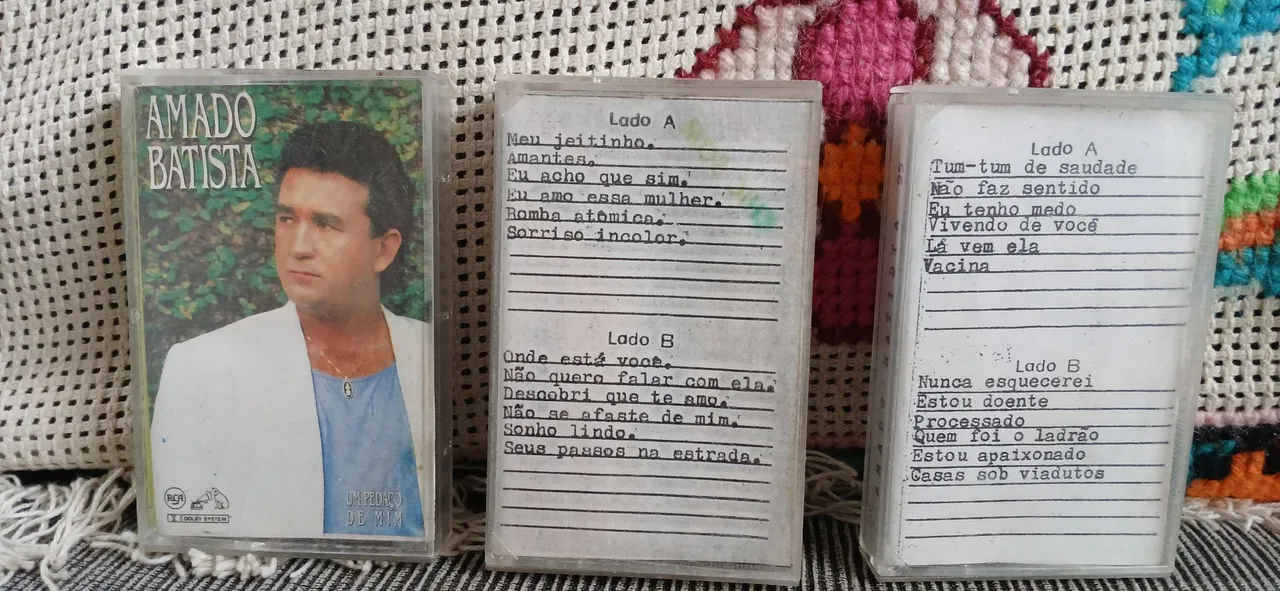 AMADO
BATISTA
RCA
DOLBY SYSTEM
UM PEDAÇO
DE MIM
Lado A
Meu jeitinho.
Amantes.
Eu acho que sim.
Eu amo essa mulher.
Bomba atômica.
Sorriso incolor.
Lado B
Onde está você.
Não quero falar com ela.
Descobri que te amo.
Não se afaste de mim.
Sonho lindo.
Seus passos na estrada.
Lado A
Tum-tum de saudade
Não faz sentido
Eu tenho medo
Vivendo de você
Lá vem ela
Vacina
Lado B
Nunca esquecerei
Estou doente
Processado
Quem foi o ladrão
Estou apaixonado
Casas sob viadutos